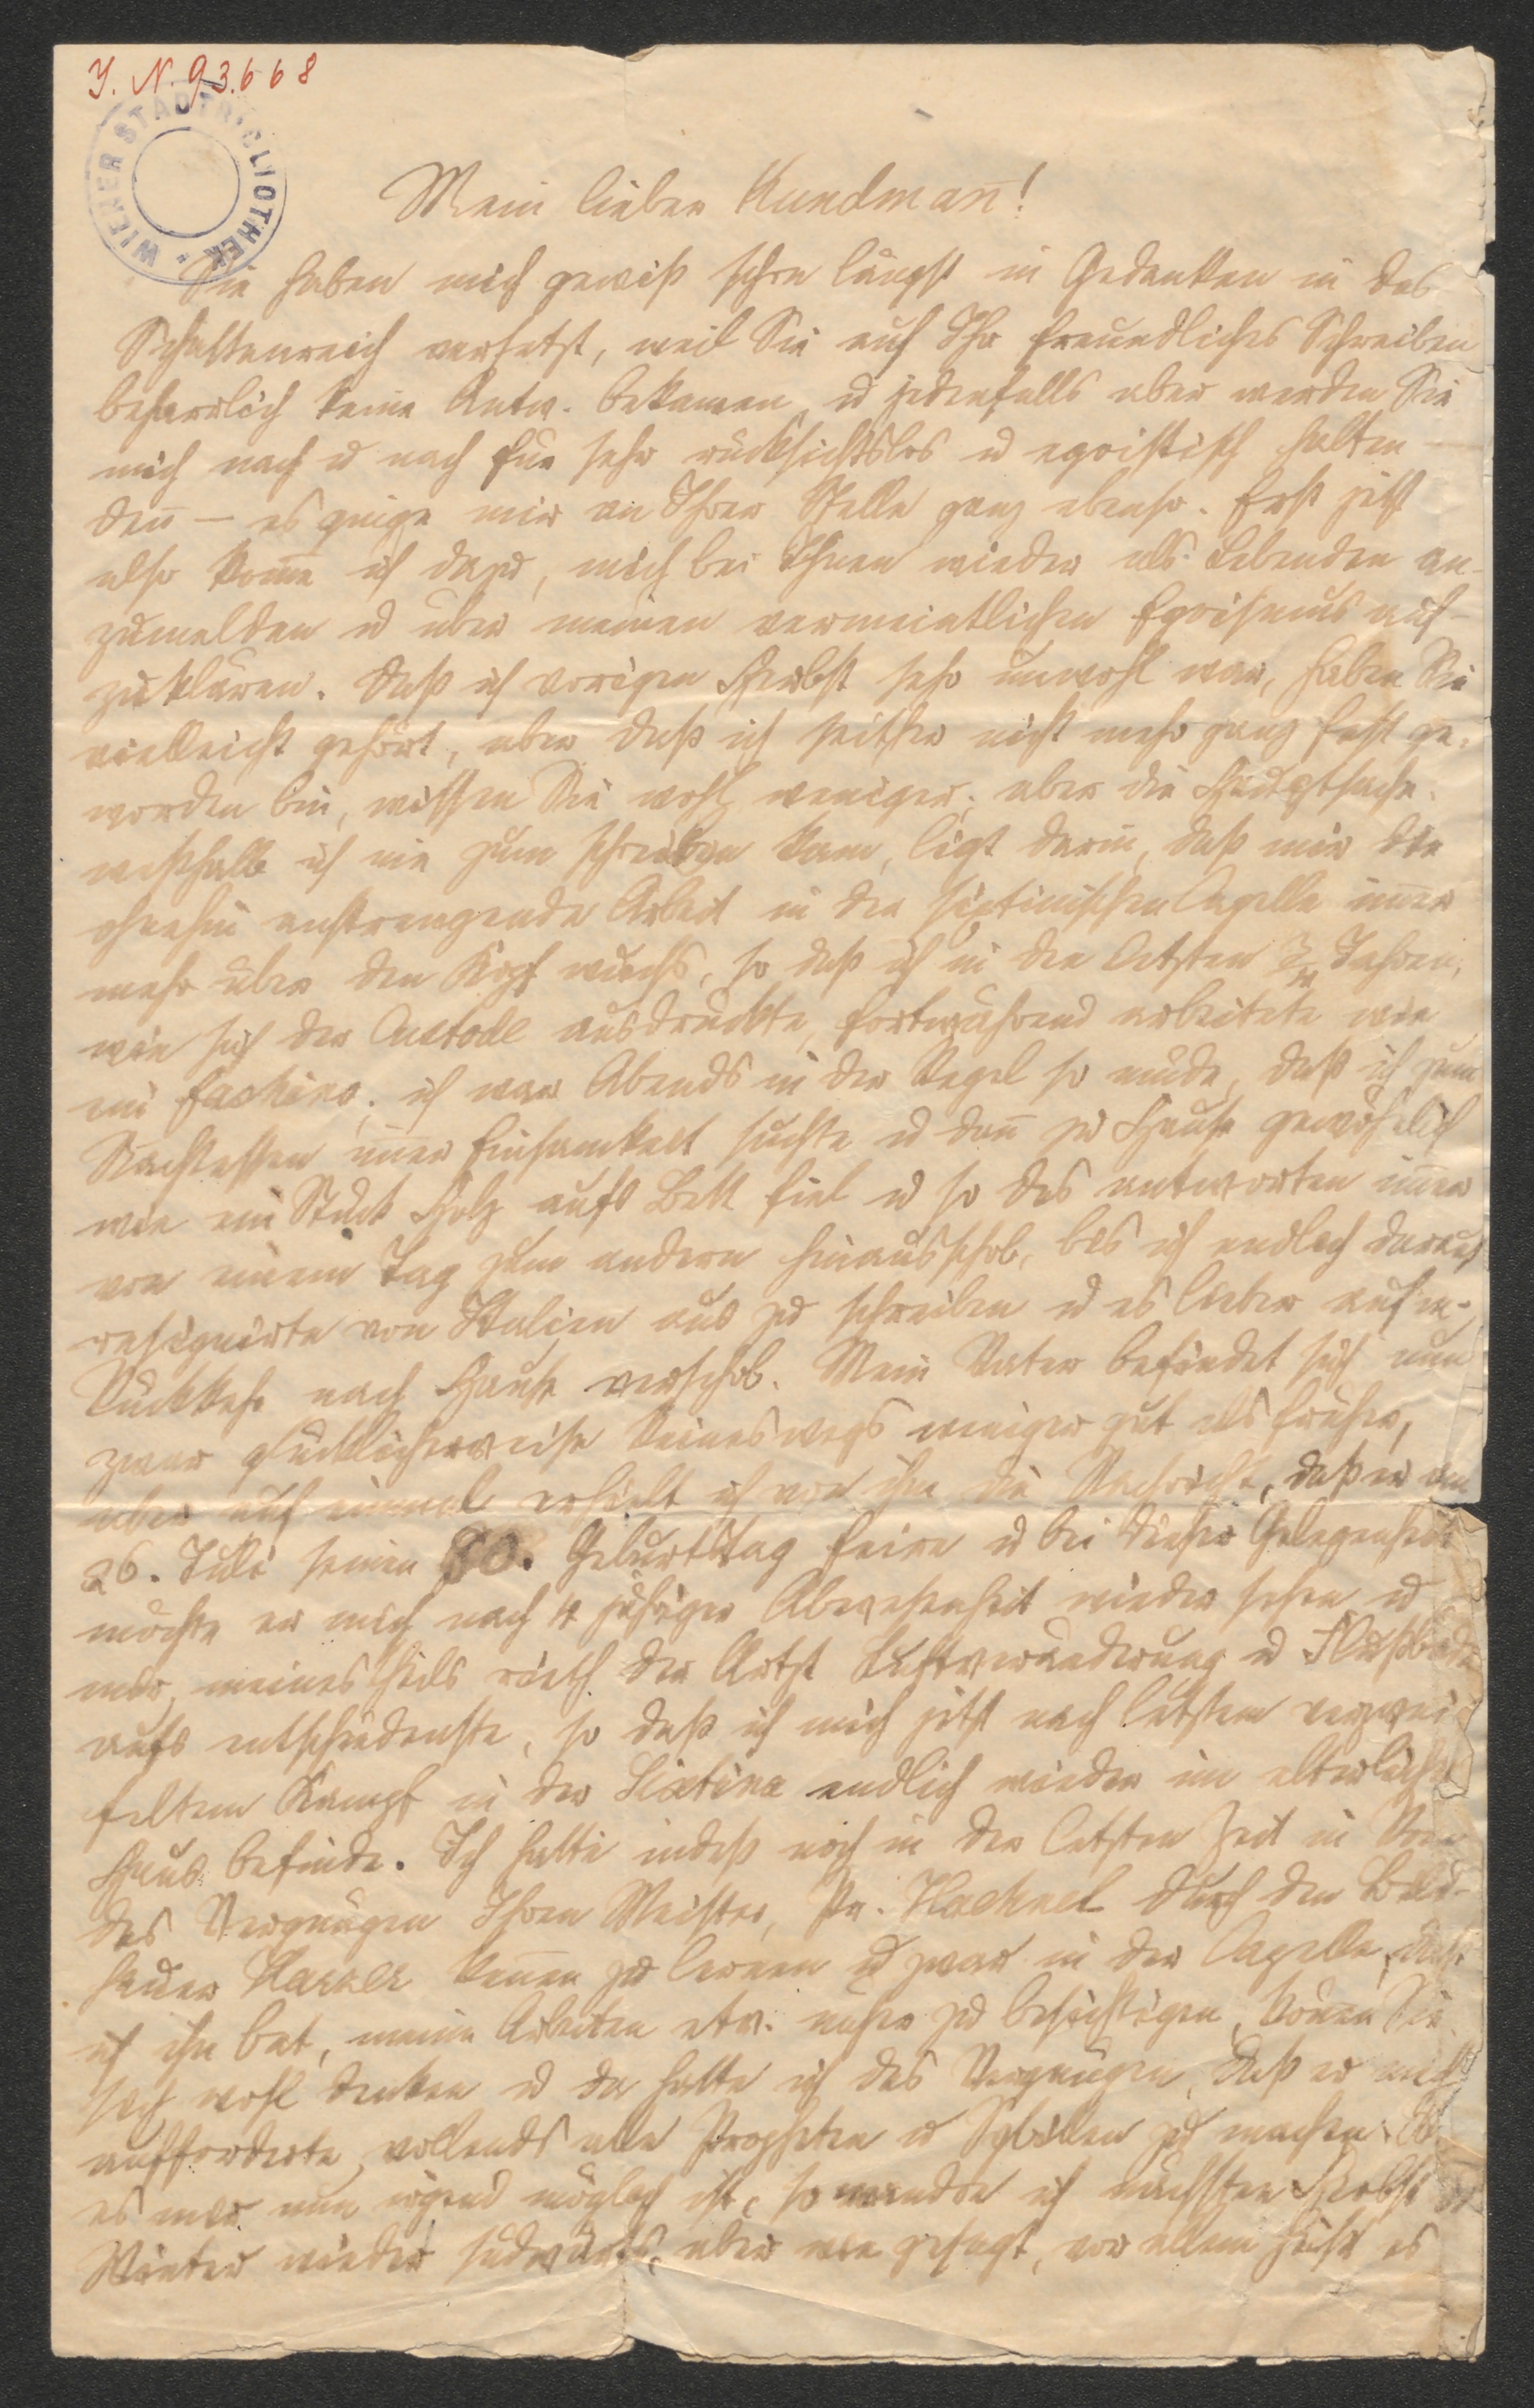 J. N. 93.668
WIENER STADTBIBLIOTHEK
Mein lieber Kundmañ!
Sie haben mich gewiß schon längst in Gedanken in das
Schattenreich versetzt, weil Sie auf Ihr freundliches Schreiben
beharrlich keine Antw. bekamen, u jedenfalls aber werden Sie
mich nach u nach für sehr rücksichtslos u egoistisch halten —
deñ — es ginge mir an Ihrer Stelle ganz ebenso. Erst jetzt
also kom̃e ich dazu, mich bei Ihnen wieder als Lebenden an-
zumelden u über meinen vermeintlichen Egoismus auf-
zuklären. Daß ich vorigen Herbst sehr unwohl war, haben Sie
vielleicht gehört, aber daß ich seither nicht mehr ganz fest ge-
worden bin, wissen Sie wohl weniger; aber die Hauptsache
weßhalb ich nie zum schreiben kam, ligt darin, daß mir die
ohnehin anstrengende Arbeit in der sixtinischen Capelle im̃er
mehr über den Kopf wuchs, so daß ich in den letzten Jahren,
wie sich der Custode ausdrückte, fortwährend arbeitete wie
ein fachino; ich war Abends in der Regel so müde, daß ich zum
Nachtessen im̃er Einsamkeit suchte u dañ zu Hause gewöhnlich
wie ein Stück Holz aufs Bett fiel u so das antworten im̃er
von einem Tag zum andern hinausschob, bis ich endlich darauf
resignirte von Italien aus zu schreiben u es lieber auf m.
Rückkehr nach Hause verschob. Mein Vater befindet sich nun
zwar glücklicherweise keineswegs weniger gut als früher,
aber auf einmal erhielt ich von ihm die Nachricht, daß er am
26. Juli seinen 80. Geburtstag feire u bei dieser Gelegenheit
möchte er mich nach 4 jähriger Abwesenheit wieder sehen u
mir meinestheils rieth der Artzt Luftveränderung u Flußbäder
aufs entschiedenste, so daß ich mich jetzt nach letztem verzwei-
feltem Kampf in der Sixtina endlich wieder im elterlichen
Haus befinde. Ich hatte indeß noch in der letzten Zeit in Rom
das Vergnügen Ihren Meister, Pr. Haehnel durch den Bild-
hauer kennen zu lernen u zwar in der Capelle, daß
ich ihn bat, meine Arbeiten etw. näher zu besichtigen, köñen Sie
sich wohl denken u da hatte ich das Vergnügen, daß er mich
aufforderte, vollends alle Propheten u Sybillen zu machen.
es mir nun irgend möglich ist, so wandre ich nächsten Herbst
Winter wieder südwärts, aber wie gesagt, vor allem heißt es